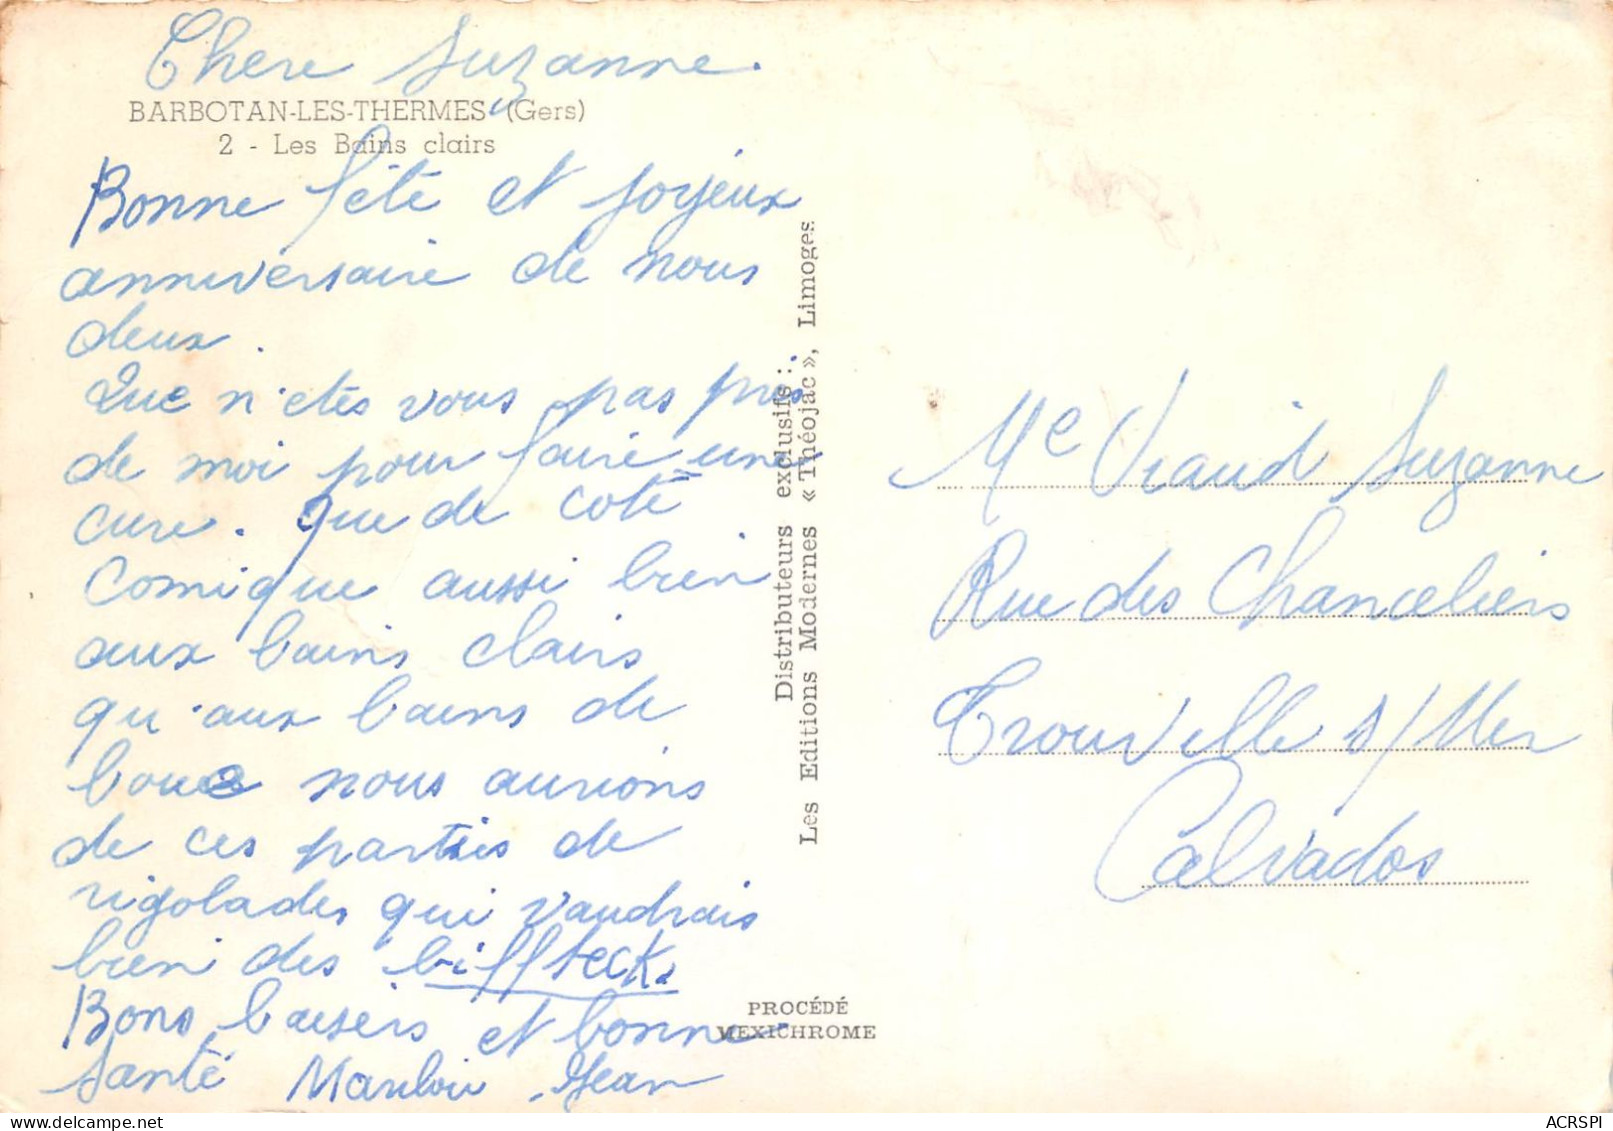 Chere Suzanne.
BARBOTAN-LES-THERMES (Gers)
2 - Les Bains clairs
Bonne fête et joyeux
anniversaire de nous
deux.
Que n'etes vous pas pres
de moi pour faire une
cure. que de coté
Comique aussi bien
aux bains clairs
qu'aux bains de
boue nous aurions
de ces parties de
rigolades qui vaudrais
bien des biffteck.
Bons baisers et bonne
santé Marilou Jean
Distributeurs exclusifs :
Les Editions Modernes « Théojac », Limoges
PROCÉDÉ
MEXICHROME
Me Viaud Suzanne
Rue des Chanceliers
Trouville s/Mer
Calvados
ACRSPI